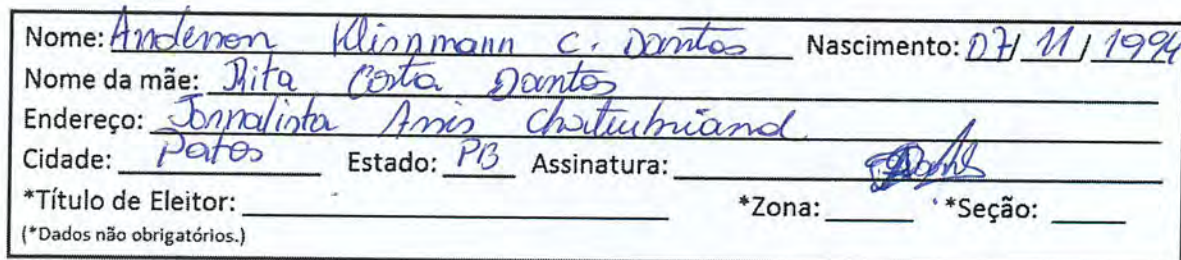 Nome: Anderson Klinnmann C. Dantas Nascimento: 07/ 11 / 1994
Nome da mãe: Rita Costa Dantas
Endereço: Jornalista Assis Chateubriand
Cidade: Patos Estado: PB Assinatura:
*Título de Eleitor: *Zona: *Seção:
(*Dados não obrigatórios.)